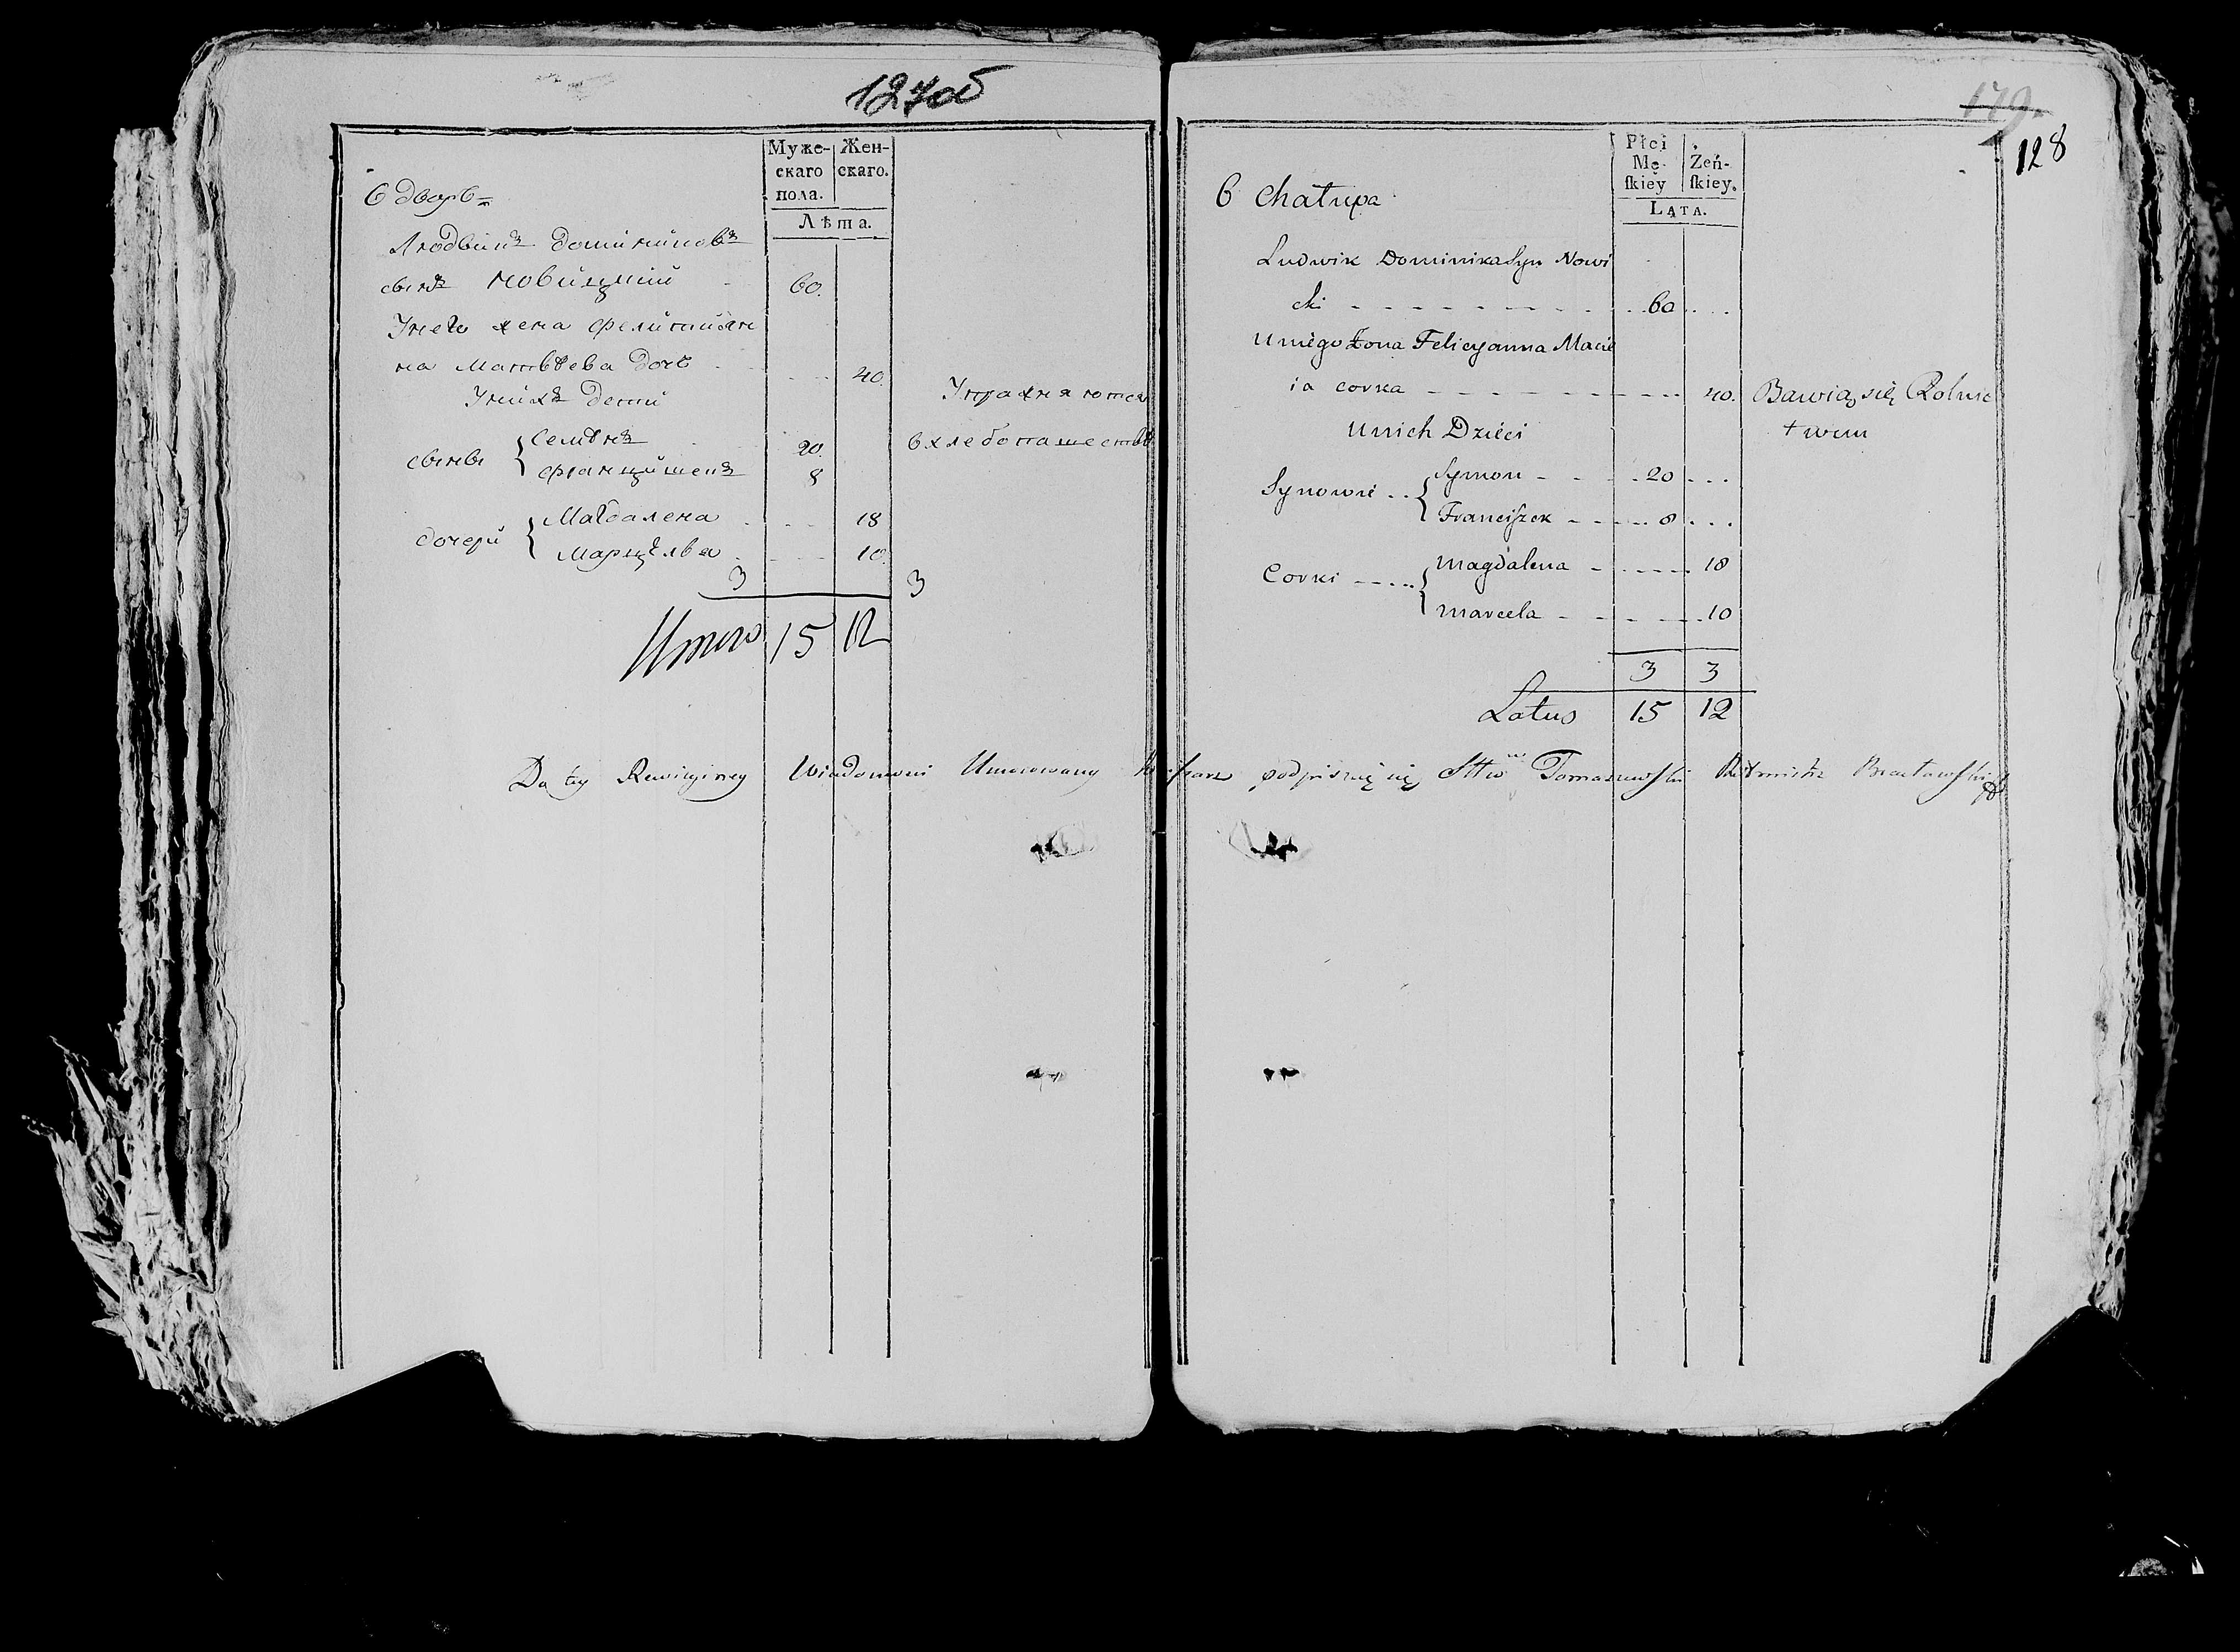 127об
Муже-
скаго
пола.
Жен-
скаго.
Лѣта.
6 дворъ
Людвикъ Доминиковъ
сынъ Новицкий 60.
У него жена Фелициян
на Матвѣева дочь 40.
У нихъ дети
Упражняются
в хлебопашествѣ
сыновья
Семѣнъ 20.
Францишекъ 8
дочери
Магдалена 18
Марцѣля 10.
3 3
Итого 15 12
179.
128
Płci
Mę-
skiey
Żeń-
skiey.
LATA.
6 Chałupa
Ludwik Dominika Syn Nowi
cki 60
U niego Żona Felicyanna Macie
ia corka 40.
Bawią się Rolnic
twem
U nich Dzieci
Synowie
Symon 20
Franciszek 8
Corki
Magdalena 18
Marcela 10
3 3
Latus 15 12
Da tey Rewizyiney Wiadomosci Umocowany podpisuię się Tomaszewski Rotmistrz Bracławski